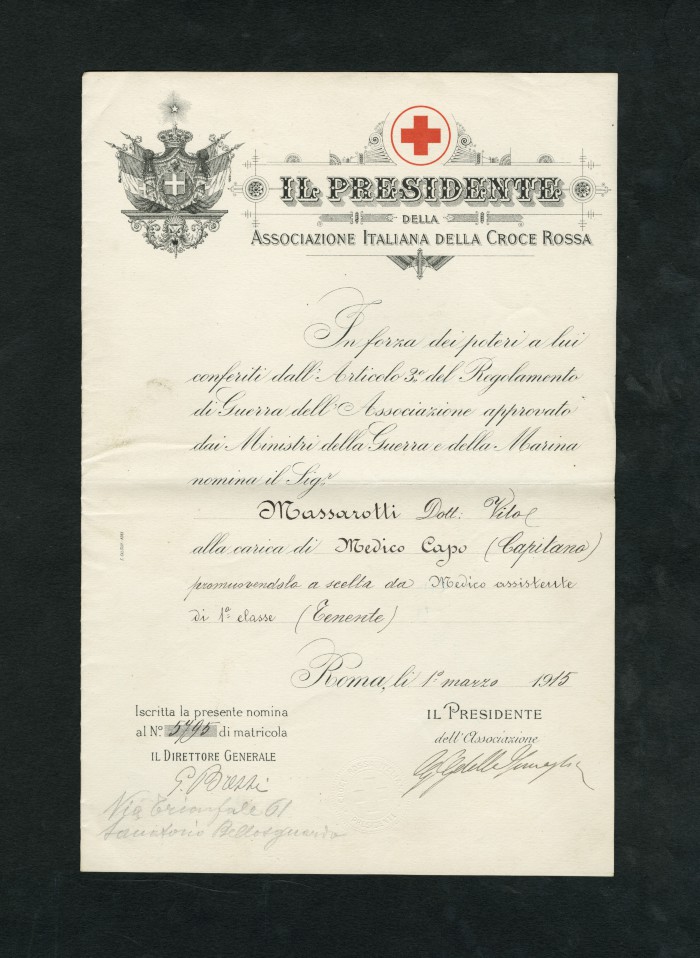 IL PRESIDENTE
DELLA
ASSOCIAZIONE ITALIANA DELLA CROCE ROSSA
In forza dei poteri a lui
conferiti dall'Articolo 3.° del Regolamento
di Guerra dell'Associazione approvato
dai Ministri della Guerra e della Marina
nomina il Sig.r
Massarotti Dott: Vito
alla carica di Medico Capo (Capitano)
promuovendolo a scelta da Medico assistente
di 1a classe (Tenente)
Roma, li 1° marzo 1915
Iscritta la presente nomina
al No. 5795 di matricola
IL DIRETTORE GENERALE
IL PRESIDENTE
dell'Associazione
Via Trionfale 61
Sanatorio Bellosguardo